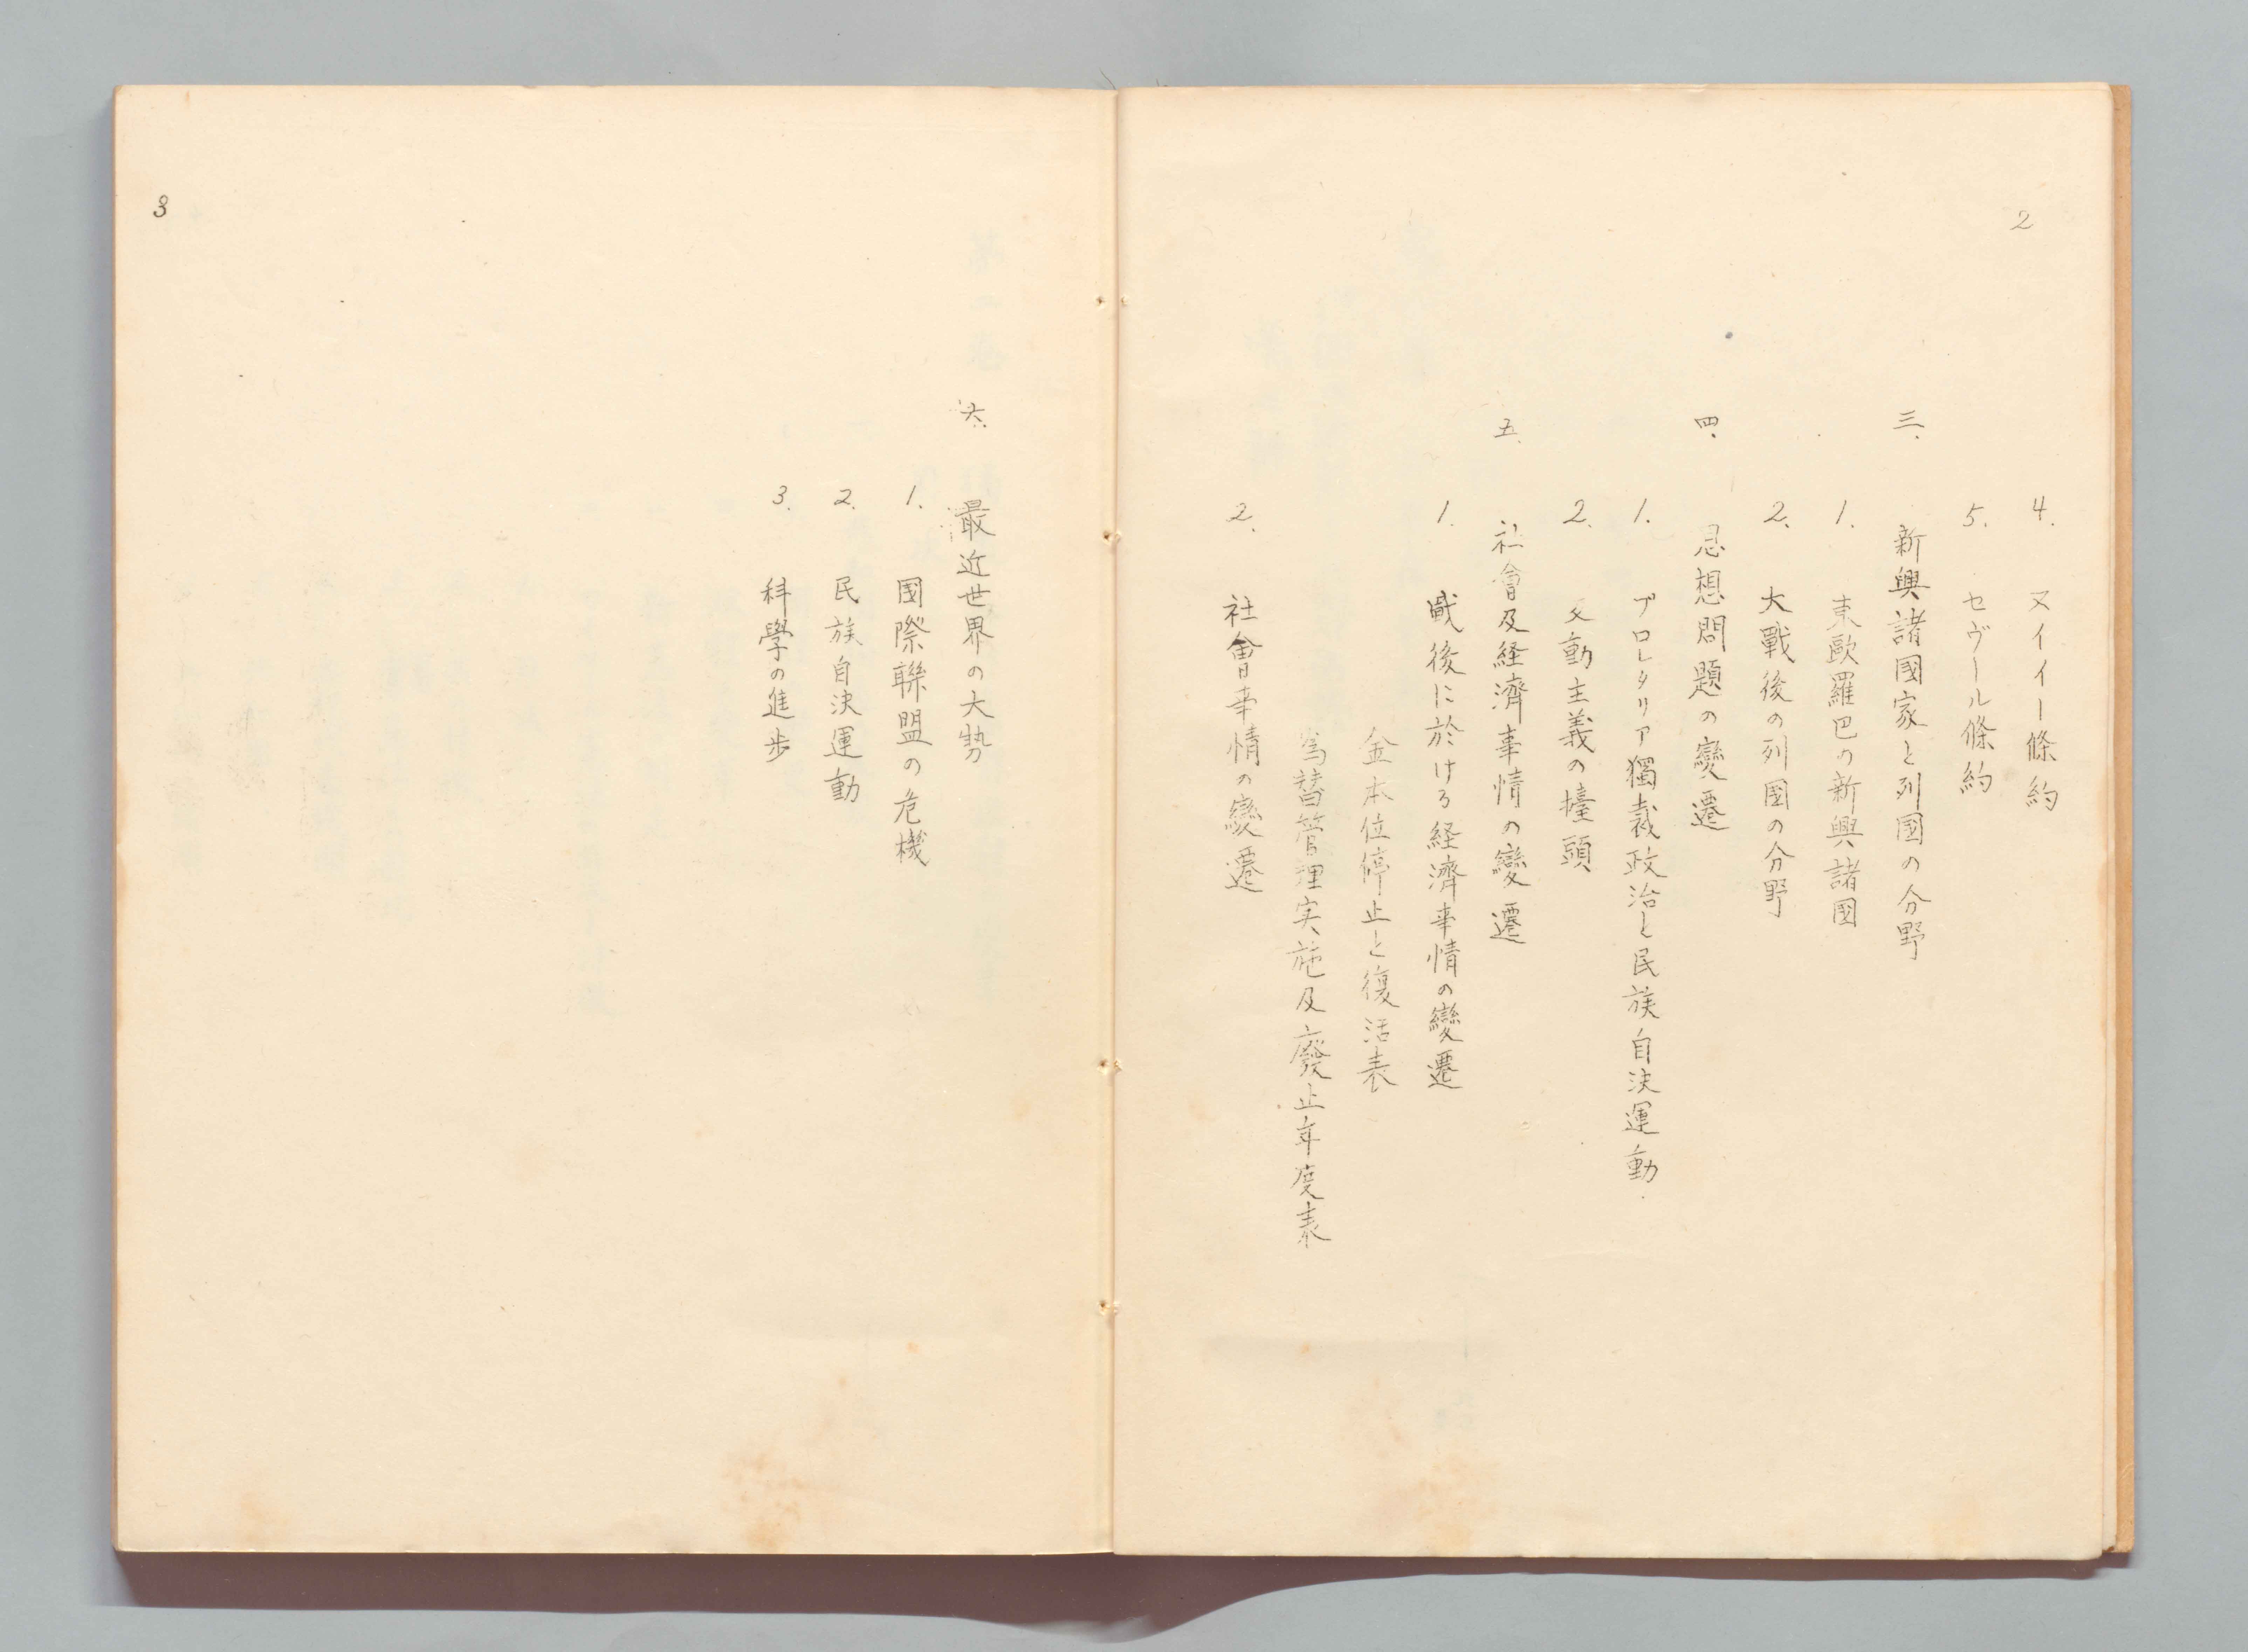 2
4. ヌイイー條約
5. セヴール條約
三. 新興諸國家と列國の分野
1. 東歐羅巴の新興諸國
2. 大戰後の列國の分野
四. 思想問題の變遷
1. プロレタリア獨裁政治と民族自決運動.
2. 反動主義の擡頭
五. 社會及経濟事情の變遷
1. 戰後に於ける経濟事情の變遷
金本位停止と復活表
為替管理実施及廢止年度表
2. 社會事情の變遷
六. 最近世界の大勢
1. 國際聯盟の危機
2. 民族自決運動
3. 科學の進步
3